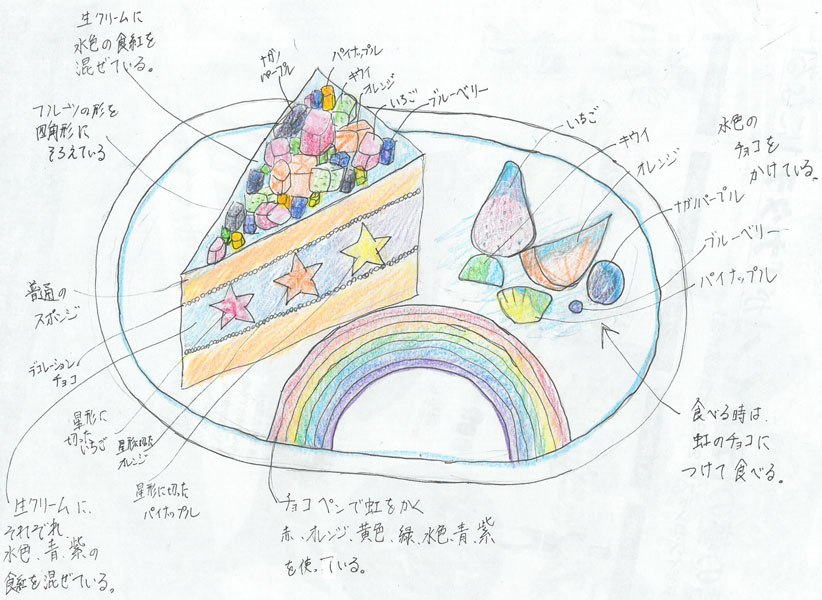 生クリームに
水色の食紅を
混ぜている。
フルーツの形を
四角形に
そろえている
ナガノ
パープル
パイナップル
キウイ
オレンジ
いちご
ブルーベリー
いちご
キウイ
オレンジ
ナガノパープル
ブルーベリー
パイナップル
水色の
チョコを
かけている。
普通の
スポンジ
デコレーション
チョコ
星形に
切った
いちご
星形に切った
オレンジ
星形に切った
パイナップル
生クリームに、
それぞれ、
水色、青、紫の
食紅を混ぜている。
チョコペンで虹をかく
赤、オレンジ、黄色、緑、水色、青、紫
を使っている。
食べる時は、
虹のチョコに
つけて食べる。